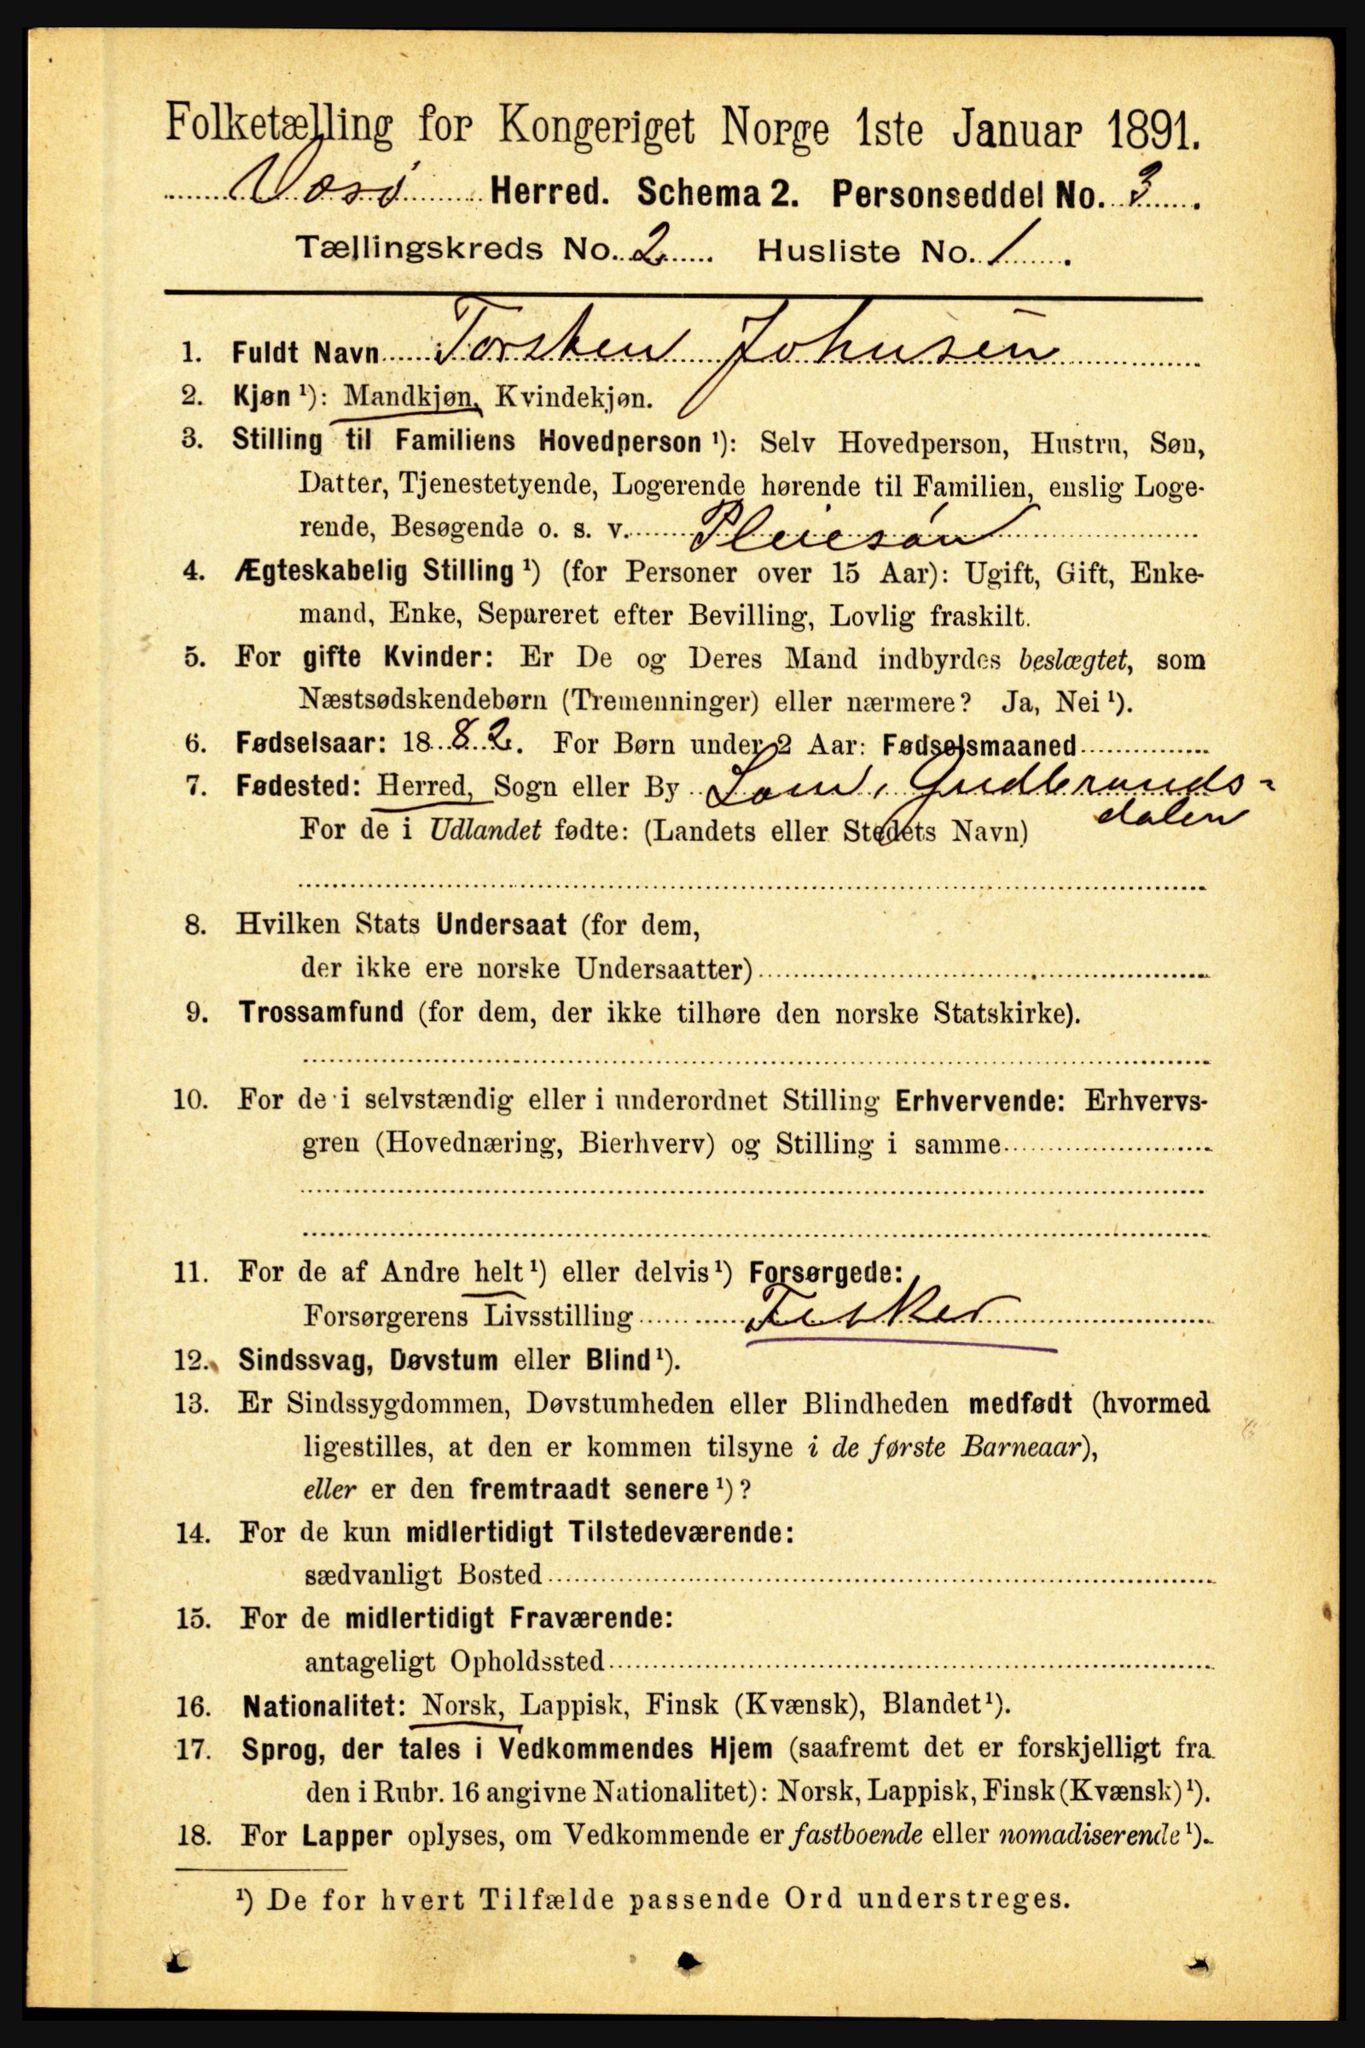 Folketælling for Kongeriget Norge 1ste Januar 1891.
Værø Herred. Schema 2. Personseddel No. 3.
Tællingskreds No. 2. Husliste No. 1.
1. Fuldt Navn Torsten Johnsen
2. Kjøn ¹): Mandkjøn, Kvindekjøn.
3. Stilling til Familiens Hovedperson ¹): Selv Hovedperson, Hustru, Søn,
Datter, Tjenestetyende, Logerende hørende til Familien, enslig Loge-
rende, Besøgende o. s. v. Pleiesøn
4. Ægteskabelig Stilling ¹) (for Personer over 15 Aar): Ugift, Gift, Enke-
mand, Enke, Separeret efter Bevilling, Lovlig fraskilt.
5. For gifte Kvinder: Er De og Deres Mand indbyrdes beslægtet, som
Næstsødskendebørn (Tremenninger) eller nærmere? Ja, Nei ¹).
6. Fødselsaar: 1882. For Børn under 2 Aar: Fødselsmaaned
7. Fødested: Herred, Sogn eller By Lom, Gudbrands-
dalen
For de i Udlandet fødte: (Landets eller Stedets Navn)
8. Hvilken Stats Undersaat (for dem,
der ikke ere norske Undersaatter)
9. Trossamfund (for dem, der ikke tilhøre den norske Statskirke).
10. For de i selvstændig eller i underordnet Stilling Erhvervende: Erhvervs-
gren (Hovednæring, Bierhverv) og Stilling i samme
11. For de af Andre helt ¹) eller delvis ¹) Forsørgede:
Forsørgerens Livsstilling Fisker
12. Sindssvag, Døvstum eller Blind ¹).
13. Er Sindssygdommen, Døvstumheden eller Blindheden medfødt (hvormed
ligestilles, at den er kommen tilsyne i de første Barneaar),
eller er den fremtraadt senere ¹)?
14. For de kun midlertidigt Tilstedeværende:
sædvanligt Bosted
15. For de midlertidigt Fraværende:
antageligt Opholdssted
16. Nationalitet: Norsk, Lappisk, Finsk (Kvænsk), Blandet ¹).
17. Sprog, der tales i Vedkommendes Hjem (saafremt det er forskjelligt fra
den i Rubr. 16 angivne Nationalitet): Norsk, Lappisk, Finsk (Kvænsk) ¹).
18. For Lapper oplyses, om Vedkommende er fastboende eller nomadiserende ¹).
¹) De for hvert Tilfælde passende Ord understreges.